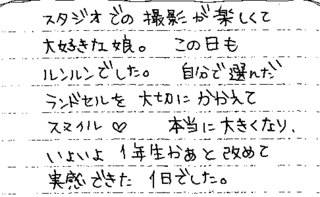 スタジオでの撮影が楽しくて
大好きな娘。 この日も
ルンルンでした。 自分で選んだ
ランドセルを大切にかかえて
スマイル♡ 本当に大きくなり、
いよいよ1年生かぁと改めて
実感できた1日でした。